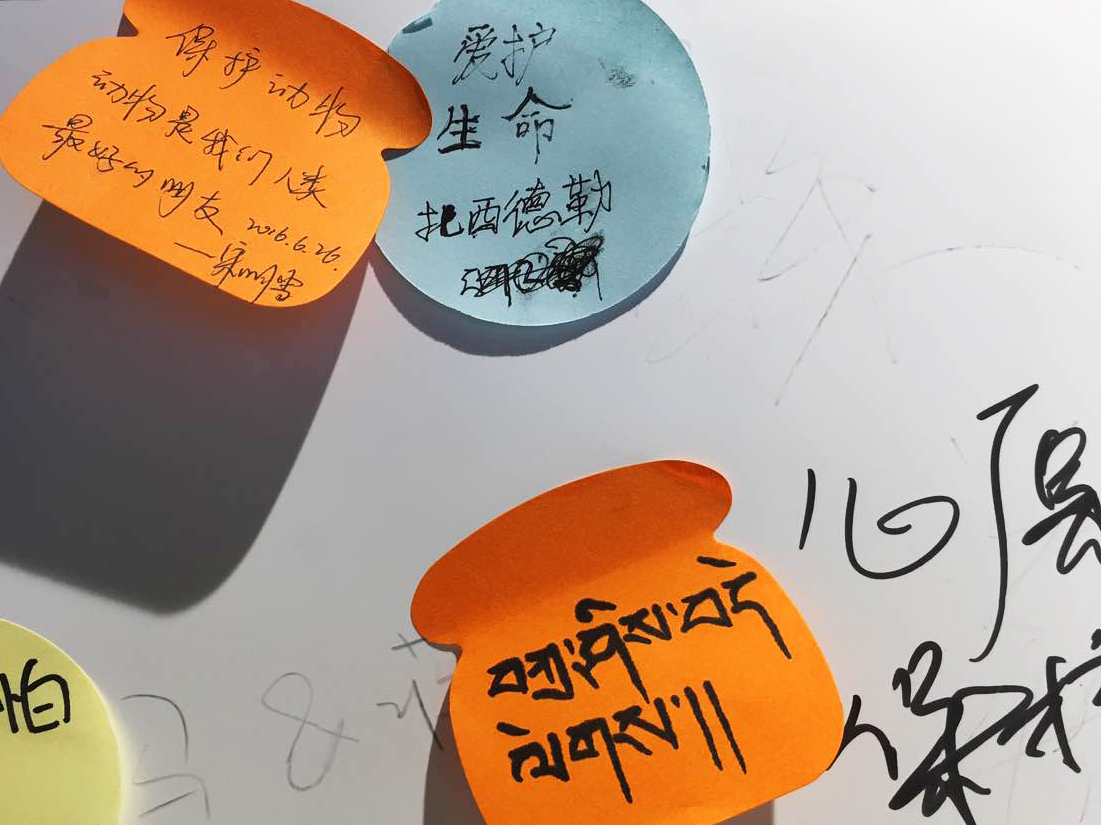 保护动物
动物是我们人类
最好的朋友
2016.6.26.
爱护
生命
扎西德勒
བཀྲ་ཤིས་བདེ་
ལེགས།།
怕
保护